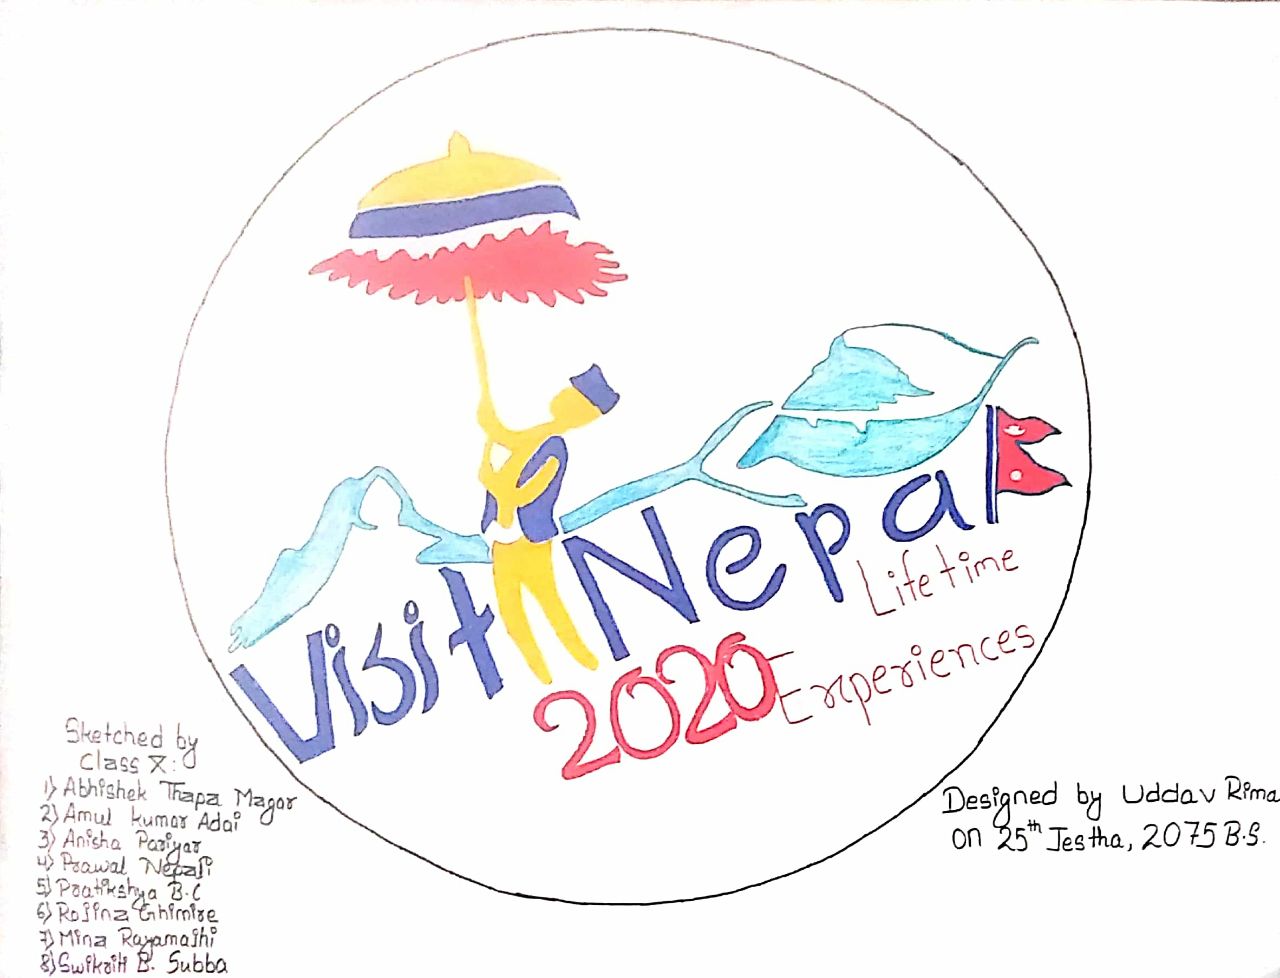 Visit Nepal
2020
Lifetime
Experiences
Sketched by
Class X:
1) Abhishek Thapa Magar
2) Amul Kumar Adai
3) Anisha Pariyar
4) Prawal Nepali
5) Pratikshya B.C
6) Rojina Ghimire
7) Mina Rayamajhi
8) Swikriti B. Subba
Designed by Uddav Rima
on 25th Jestha, 2075 B.S.